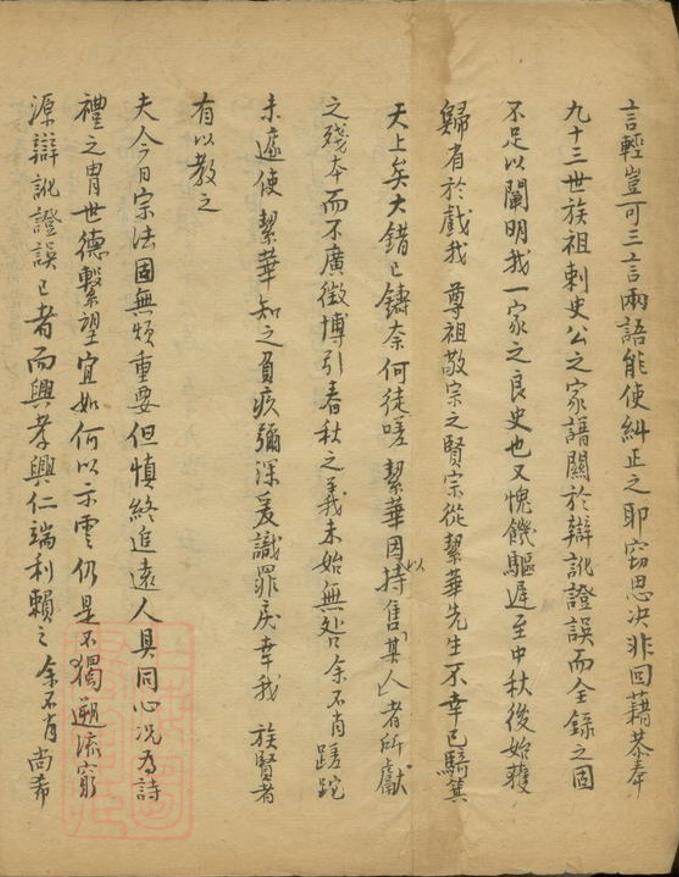 言輕豈可三言兩語能使糾正之耶竊思决非回藉恭奉
九十三世族祖刺史公之家譜關於辯訛證誤而全錄之固
不足以闡明我一家之良史也又愧饑驅遲至中秋後始獲
歸省於戲我 尊祖敬宗之賢宗從絜華先生不幸已騎箕
天上矣大錯已鑄奈何徒嗟 絜華因持以售其人者所獻
之殘本而不廣徵博引春秋之義未始無咎余不肖蹉跎
未遽使 絜華知之負疚彌深爰識罪戾幸我 族賢者
有以教之
夫今日宗法固無煩重要但慎終追遠人具同心况為詩
禮之胄世德繫望宜如何以示雲仍是不獨遡流窮
源辯訛證誤已者而興孝興仁端利賴之 余不肖尚希